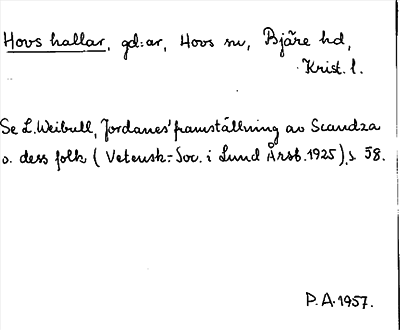 Hovs hallar, gd:ar, Hovs sn, Bjäre hd,
Krist. l.
Se L. Weibull, Jordanes' framställning av Scandza
o. dess folk (Vetensk.-Soc. i Lund Årsb. 1925), s. 58.
P.A. 1957.